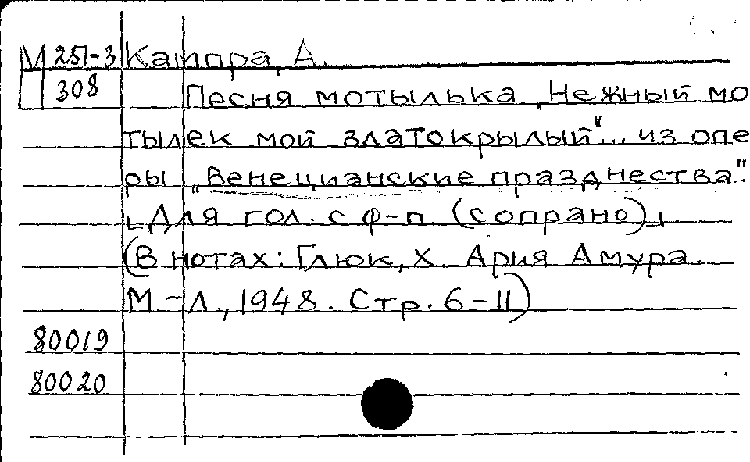 М 251-3 Кампра, А.
308 Песня мотылька „Нежный мо
тылек мой златокрылый"... из опе
ры „Венецианские празднества".
[Для гол. с ф-п. (сопрано)]
(В нотах: Глюк, Х. Ария Амура.
М-Л., 1948. Стр. 6-11)
80019
80020